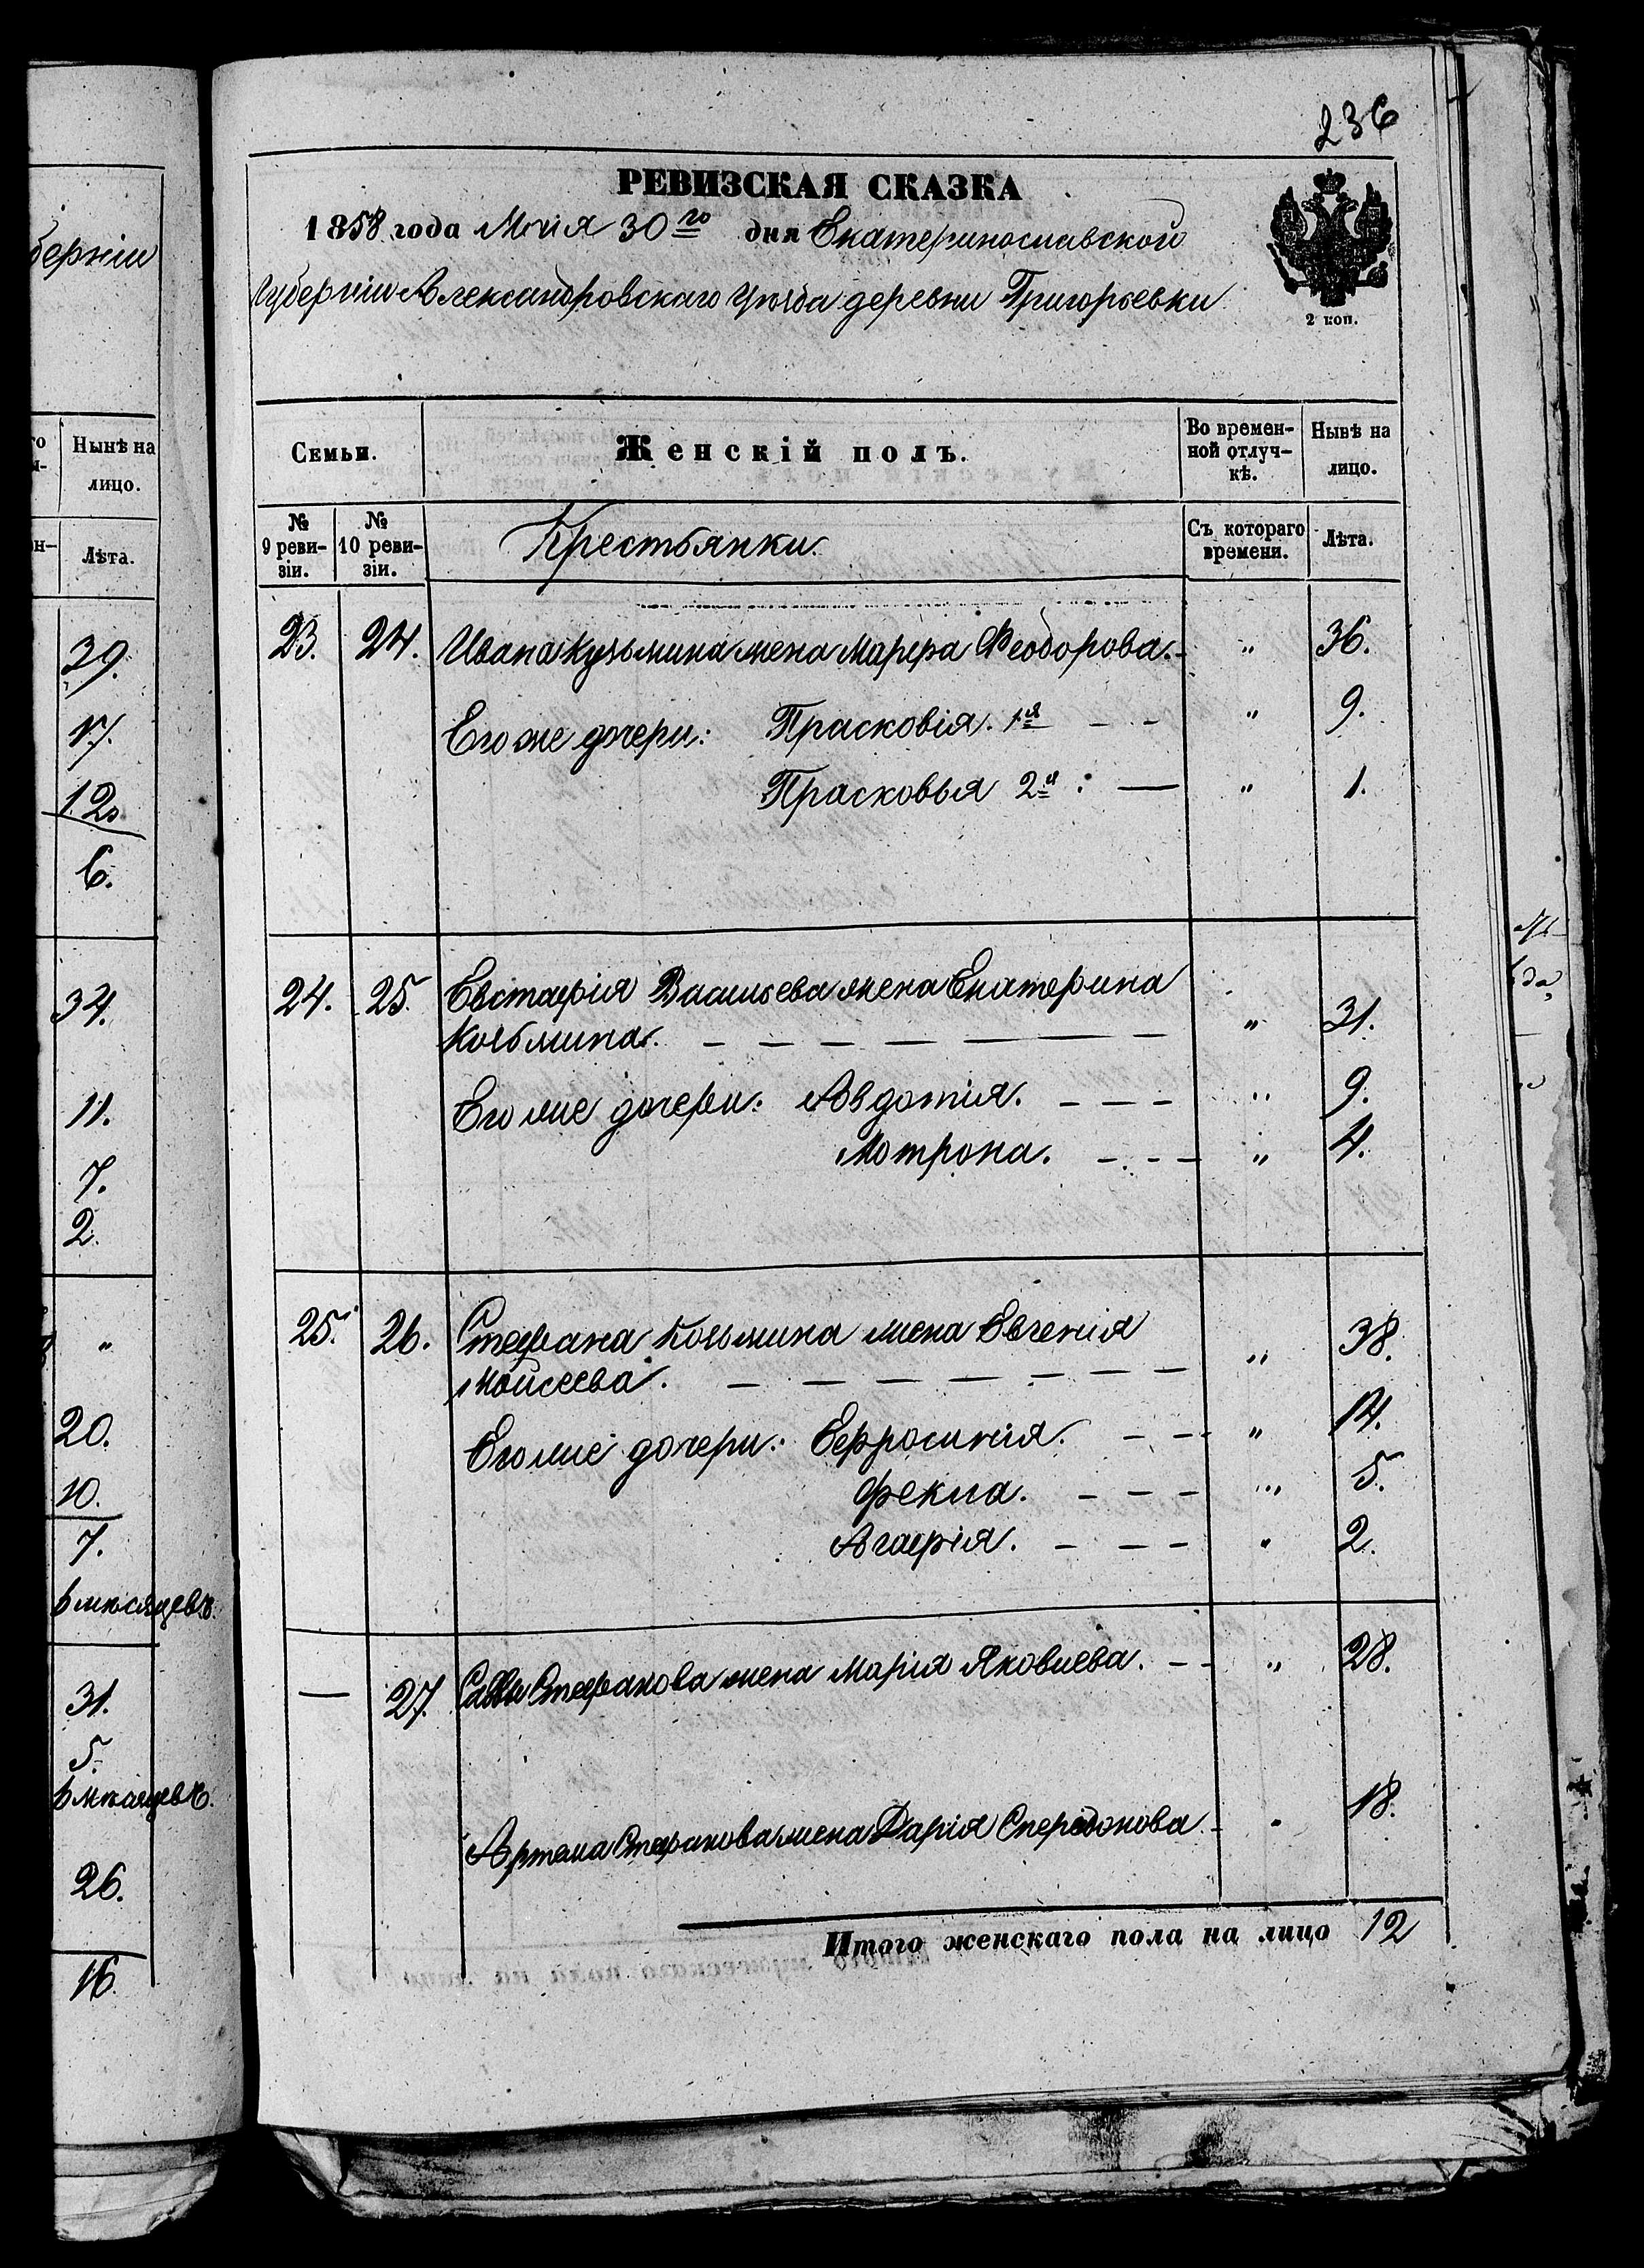 236
РЕВИЗСКАЯ СКАЗКА
1858 года Маія 30го дня Екатеринославской
Губерніи Александровскаго Уѣзда деревни Григорьевки
2 коп.
Семьи.
Женскій полъ.
Во времен-
ной отлуч-
кѣ.
Нынѣ на
лицо.
№
9 реви-
зіи.
№
10 реви-
зіи.
Крестьянки.
Съ котораго
времени.
Лѣта.
23. 24. Ивана Кузьмина жена Марѳа Феодорова. - " 36.
Его же дочери: Прасковія. 1я - - " 9.
Прасковья 2я: — " 1.
24. 25. Евстафія Васильева жена Екатерина
Козьмина. - - - - - - - " 31.
Его же дочери: Авдотія. - - - " 9.
Мотрона. - - - " 4.
25. 26. Стефана Козьмина жена Евгенія
Моисеева. - - - - - - - " 38.
Его же дочери: Ефросинія. - - - " 14.
Фекла. - - - " 5.
Агафія. - - - " 2.
— 27. Саввы Стефанова жена Марія Яковлева. - - " 28.
Артема Стефанова жена Дарія Спередонова - " 18.
Итого женскаго пола на лицо 12
берніи
Нынѣ на
лицо.
Лѣта.
39.
17.
12.
6.
34.
11.
7.
2.
"
20.
10.
7.
мѣсяцевъ.
31.
5.
мѣсяцевъ.
26.
16.